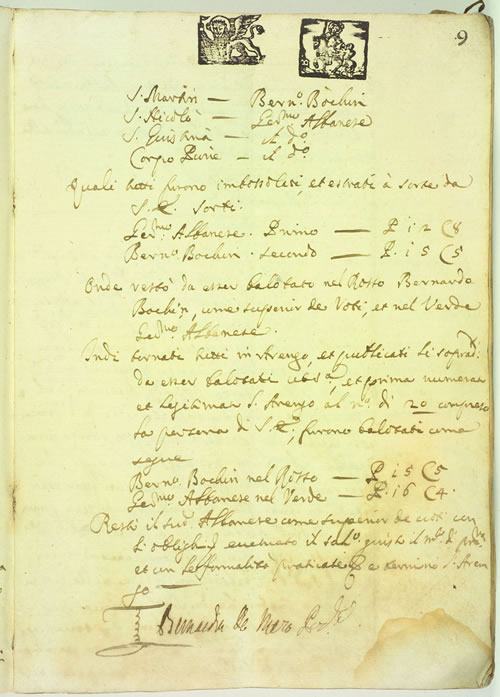 9
S. Martin — Bern.o Bochin
S. Nicolò — Albanese
S. Giustina — il d.o
Corpo — il d.o
Quali tutti furono imbossolati, et estratti à sorte da
S. E. sortì
Albanese. Primo — P. 12 C 8
Bern.o Bochin. secondo — P. 15 C 5
Onde restò da esser balotato nel Rosso Bernardo
Bochin, come superior de Voti, et nel Verde
Albanese.
Indi tornati tutti in Arengo, et publicati li soprad.i
da esser balotati et prima numerar
et legitimar l'Arengo al n.o di 20 compreso
la persona di S. E., furono balotati come
segue
Bern.o Bochin nel Rosso — P. 15 C 5
Albanese nel Verde — P. 16 C 4.
Restò il sud.o Albanese come superior de voti con
l'obligh il giusti il di
et con le formalità praticate e terminò l'Aren
go —
Bernardin da Mara